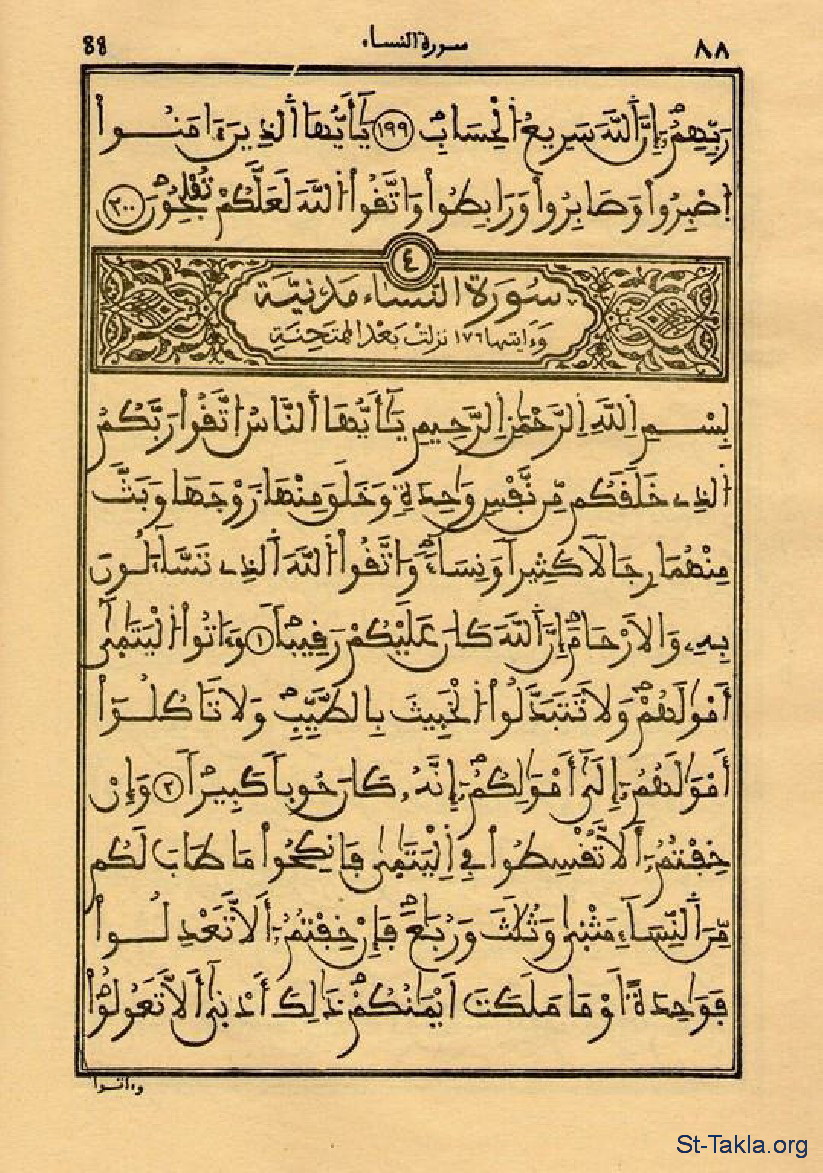 88 سورة النساء ٨٨
رَبِّهِمُۥٓ إِنَّ ٱللَّهَ سَرِيعُ ٱلْحِسَابِ ١٩٩ يَٰٓأَيُّهَا ٱلذِينَ ءَامَنُواْ
ٱصْبِرُواْ وَصَابِرُواْ وَرَابِطُواْ وَاتَّقُواْ ٱللَّهَ لَعَلَّكُمْ تُفْلِحُونَ ٢٠٠
٤
سُورَةُ النِّسَاءِ مَدَنِيَّة
وءايتها ١٧٦ نزلت بَعْدَ الممتَحِنَة
بِسْمِ ٱللَّهِ ٱلرَّحْمَٰنِ ٱلرَّحِيمِ يَٰٓأَيُّهَا ٱلنَّاسُ ٱتَّقُواْ رَبَّكُمُ
ٱلذِے خَلَقَكُم مِّن نَّفْسٍ وَٰحِدَةٍ وَخَلَقَ مِنْهَا زَوْجَهَا وَبَثَّ
مِنْهُمَا رِجَالًا كَثِيرًا وَنِسَآءً وَاتَّقُواْ ٱللَّهَ ٱلذِے تَسَّآءَلُونَ
بِهِۦ وَالَارْحَامَ إِنَّ ٱللَّهَ كَانَ عَلَيْكُمْ رَقِيبًا ١ وَءَاتُواْ ٱلْيَتَٰمَىٰٓ
أَمْوَٰلَهُمْ وَلَا تَتَبَدَّلُواْ ٱلْخَبِيثَ بِالطَّيِّبِ وَلَا تَاكُلُوٓاْ
أَمْوَٰلَهُمُۥٓ إِلَىٰٓ أَمْوَٰلِكُمُۥٓ إِنَّهُۥ كَانَ حُوبًا كَبِيرًا ٢ وَإِنْ
خِفْتُمُۥٓ أَلَّا تُقْسِطُواْ فِے ٱلْيَتَٰمَىٰ فَانكِحُواْ مَا طَابَ لَكُم
مِّنَ ٱلنِّسَآءِ مَثْنَىٰ وَثُلَٰثَ وَرُبَٰعَ فَإِنْ خِفْتُمُۥٓ أَلَّا تَعْدِلُواْ
فَوَٰحِدَةً أَوْ مَا مَلَكَتَ اَيْمَٰنُكُمْ ذَٰلِكَ أَدْنَىٰٓ أَلَّا تَعُولُواْ
وءاتوا
St-Takla.org